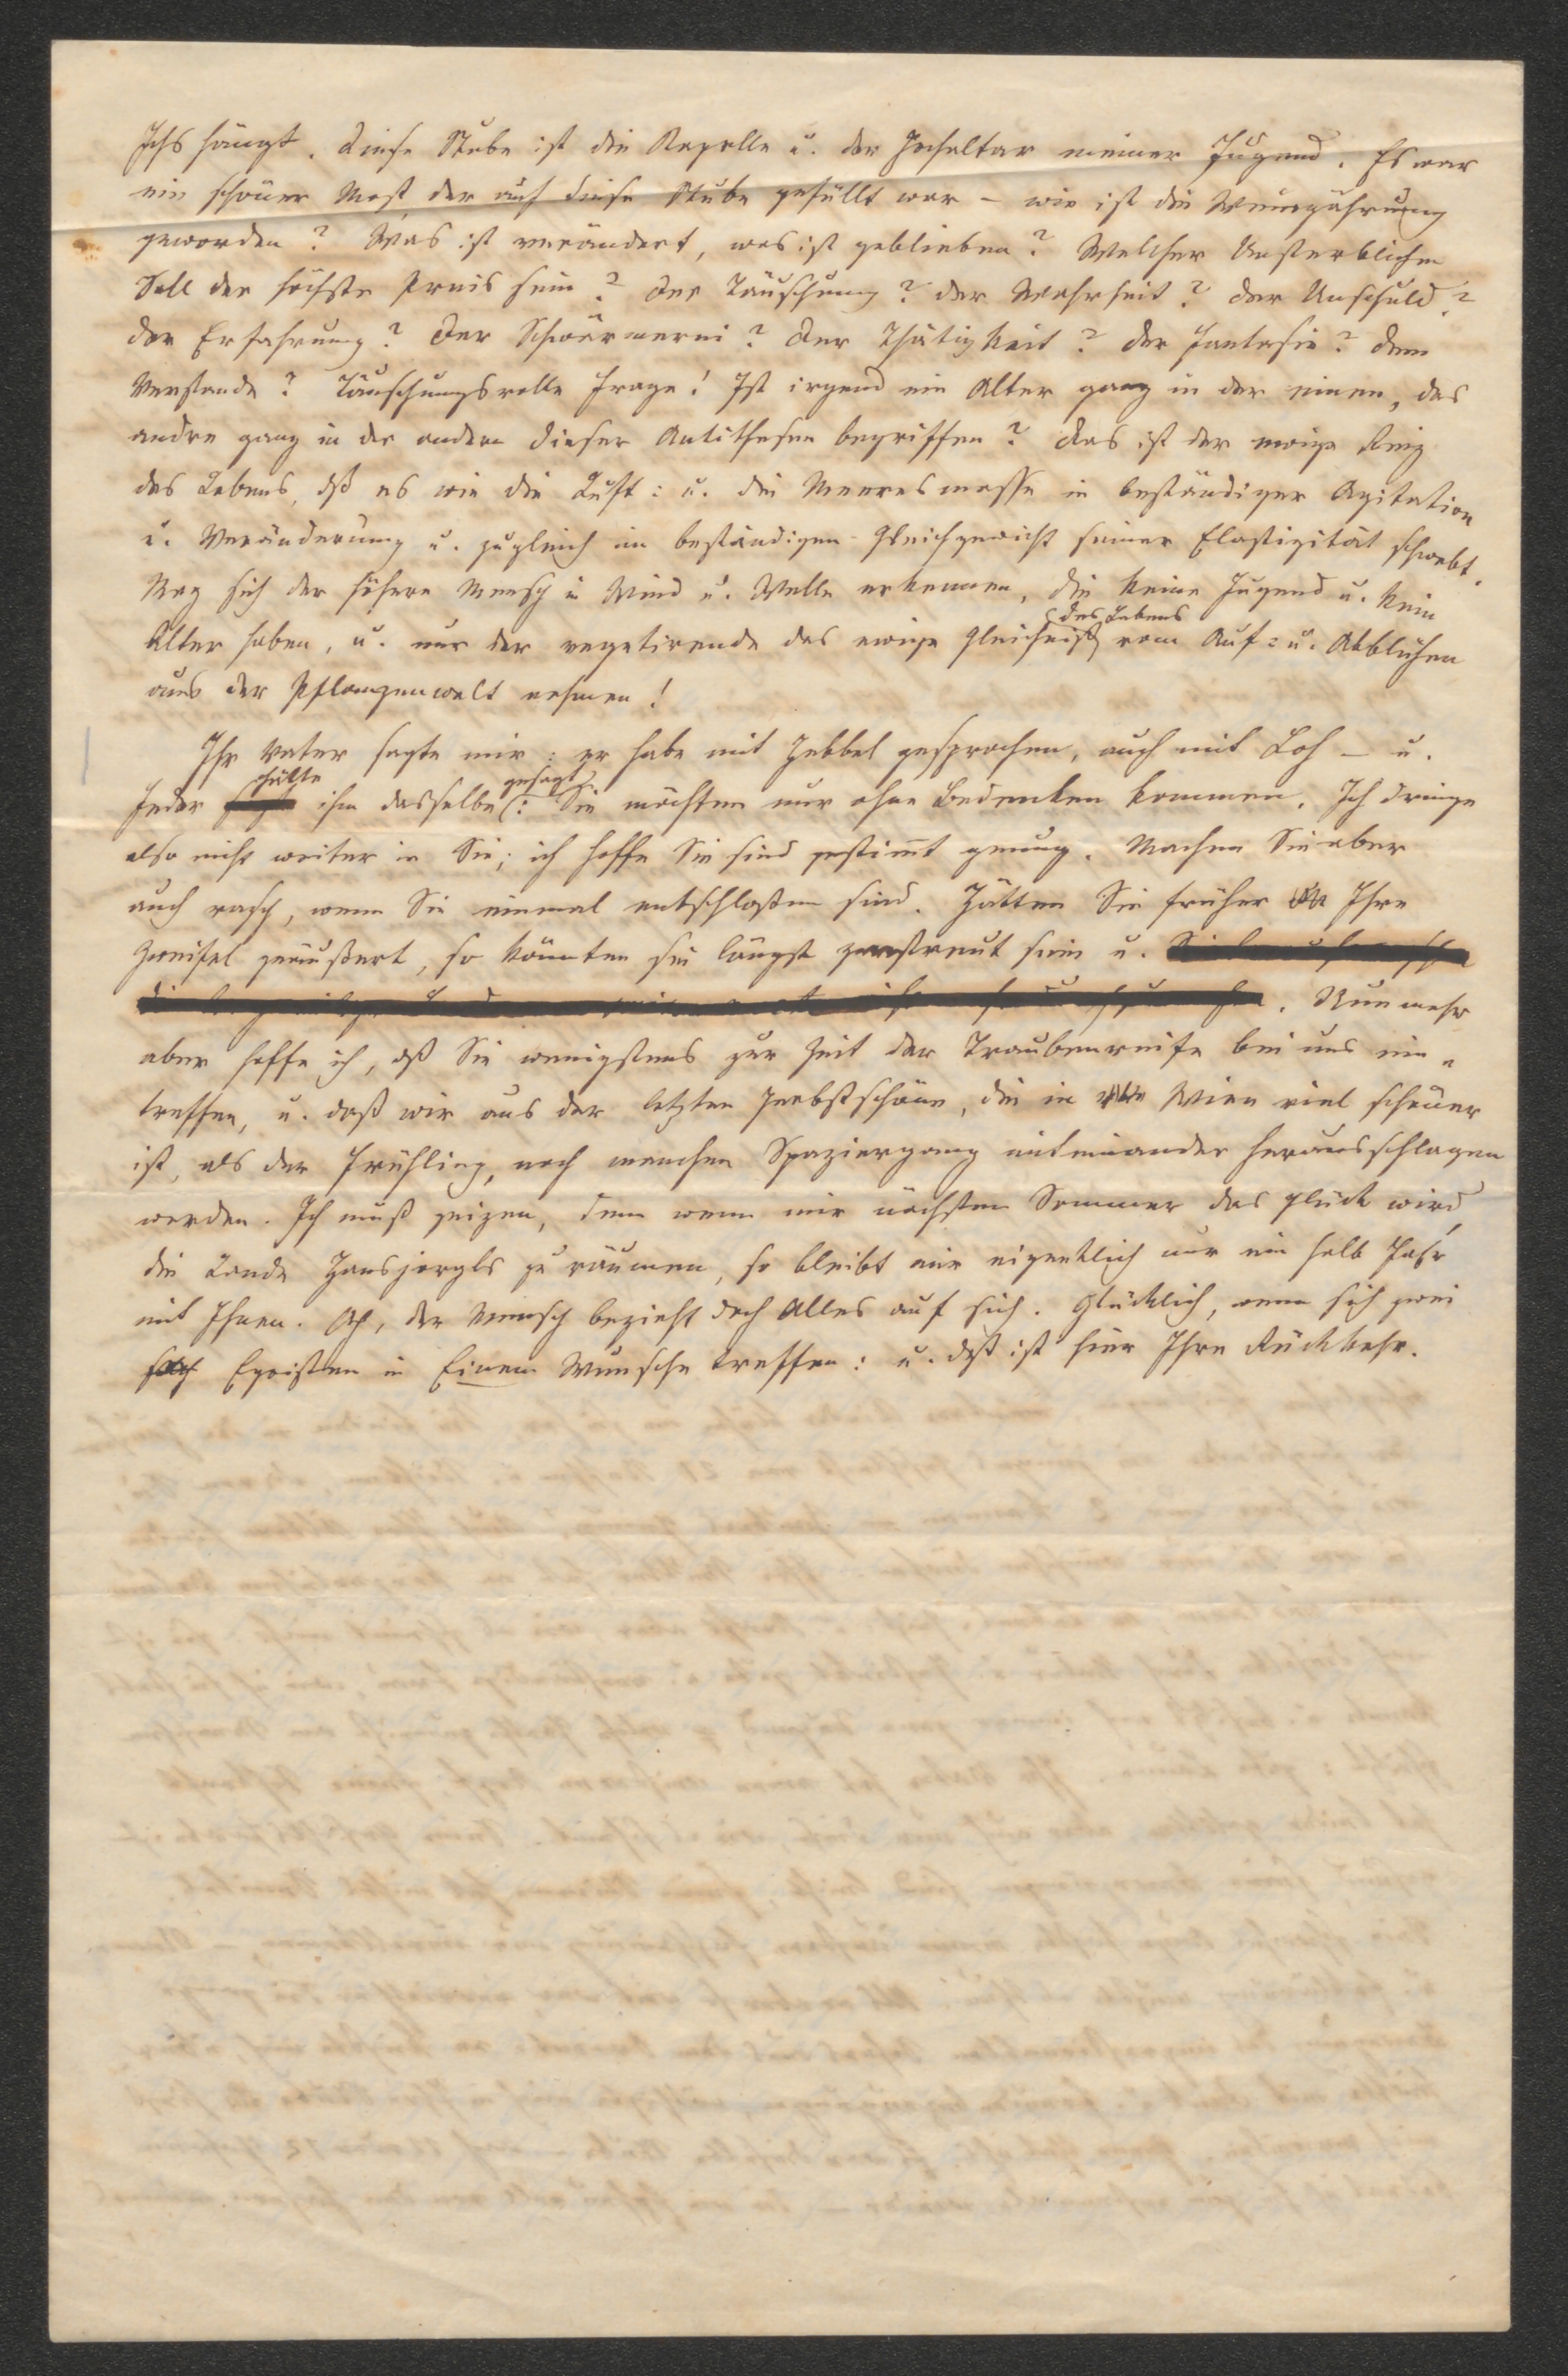 Ichs hängt. Diese Stube ist die Kapelle u. der Hochaltar meiner Jugend. Es war
ein schöner Most, der auf diese Stube gefüllt war – wie ist die Weingährung
geworden? Was ist verändert, was ist geblieben? Welcher Unsterblichen
Soll der höchste Preis sein? Der Täuschung? der Wahrheit? der Unschuld?
der Erfahrung? Der Schwärmerei? Der Thätigkeit? der Fantasie? dem
Verstande? Täuschungsvolle Frage! Ist irgend ein Alter ganz in der einen, das
andre ganz in der andern dieser Antithesen begriffen? Das ist der ewige Reiz
des Lebens, dß es wie die Luft= u. die Meeresmasse in beständiger Agitation
u. Veränderung u. zugleich im beständigen Gleichgewicht seiner Elastizität schwebt.
Mag sich der höhere Mensch in Wind u. Welle erkennen, die keine Jugend u. kein
Alter haben, u. nur der vegetirende das ewige Gleichniß des Lebens vom Auf= u. Abblühen
aus der Pflanzenwelt nehmen!
Ihr Vater sagte mir: er habe mit Hebbel gesprochen, auch mit Loh – u.
Jeder hätte ihm dasselbe gesagt: Sie möchten nur ohne Bedenken kommen. Ich dringe
also nicht weiter in Sie; ich hoffe Sie sind gestimt genug. Machen Sie aber
auch rasch, wenn Sie einmal entschloßen sind. Hätten Sie früher Ihre
Zweifel geäußert, so könnten sie längst zerstreut sein u.
. Nunmehr
aber hoffe ich, dß Sie wenigstens zur Zeit der Traubenreife bei uns ein=
treffen, u. daß wir aus der letzten Herbstschöne, die in Wien viel schöner
ist, als der Frühling, noch manchen Spaziergang miteinander herausschlagen
werden. Ich muß geizen, denn wenn mir nächsten Sommer das Glück wird,
die Lande Hansjörgls zu räumen, so bleibt mir eigentlich nur ein halb Jahr
mit Ihnen. Ach, der Mensch bezieht doch Alles auf sich. Glücklich, wenn sich zwei
Egoisten in Einem Wunsche treffen: u. dß ist hier Ihre Rückkehr.